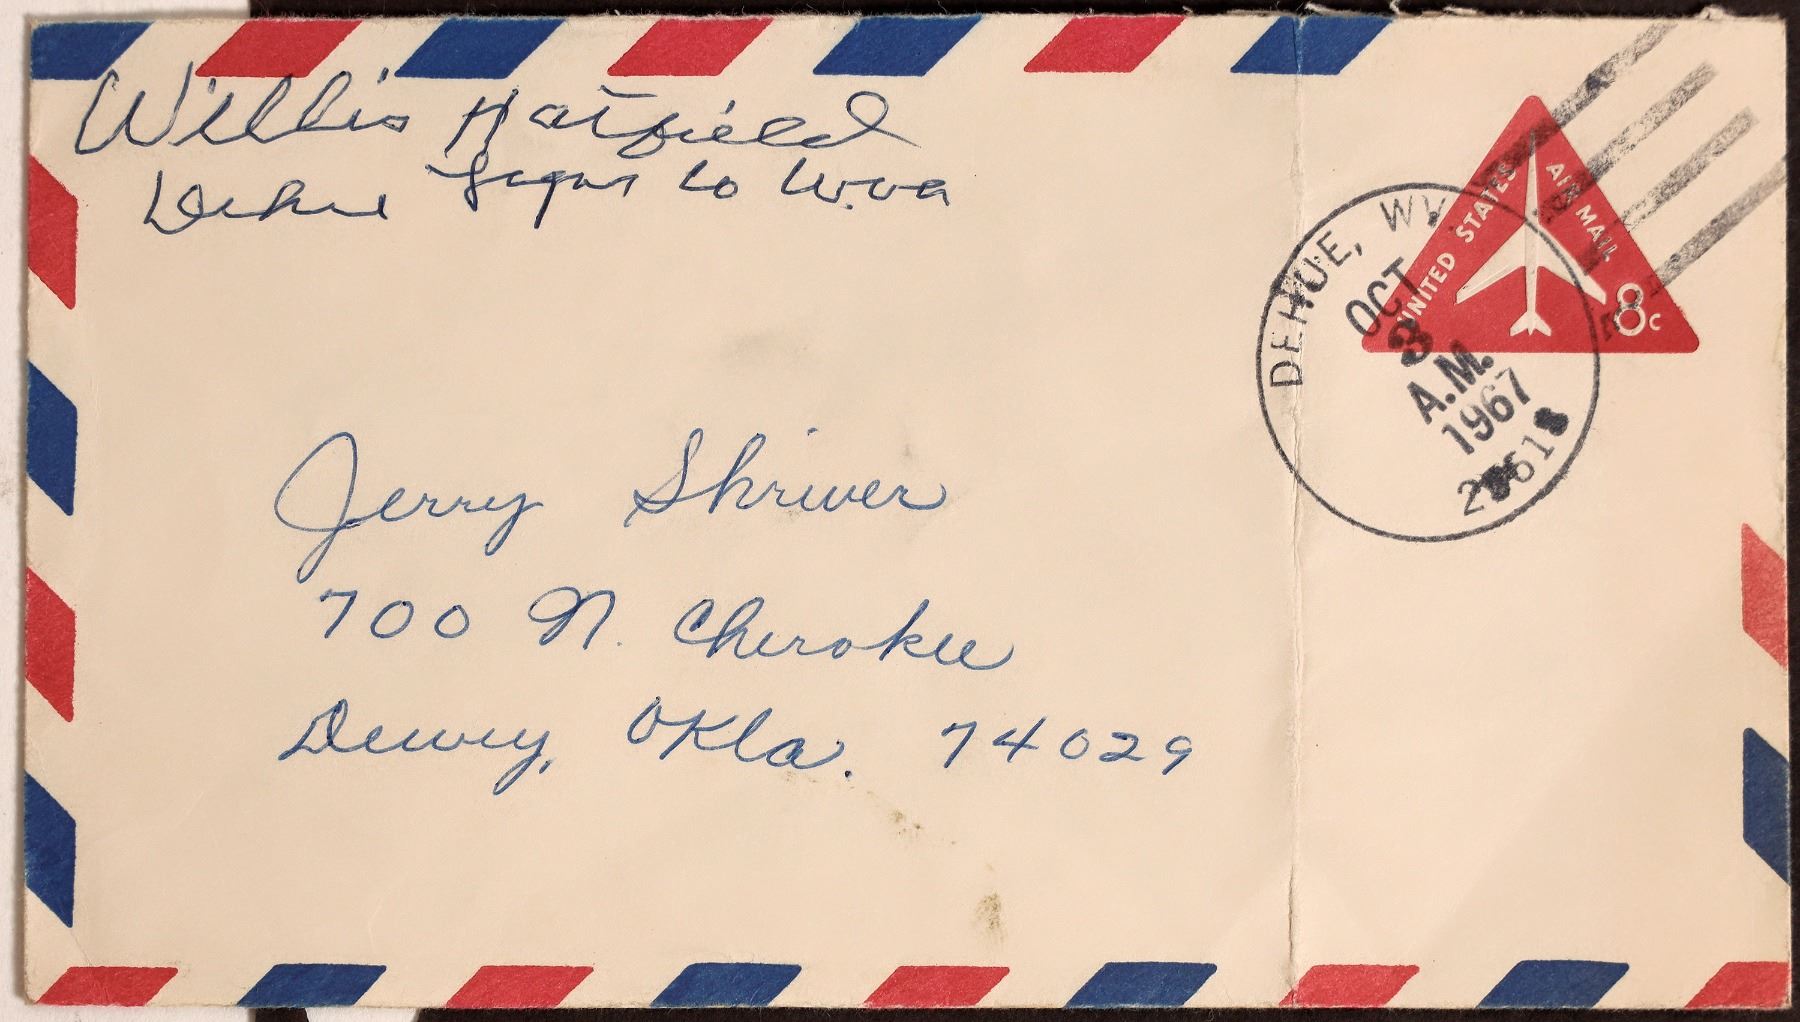 Willis Hatfield
Dehue Logan Co W.va
UNITED STATES AIR MAIL
8c
DEHUE, WV
OCT
3
A.M.
1967
Jerry Shriver
700 N. Cherokee
Dewey, Okla. 74029